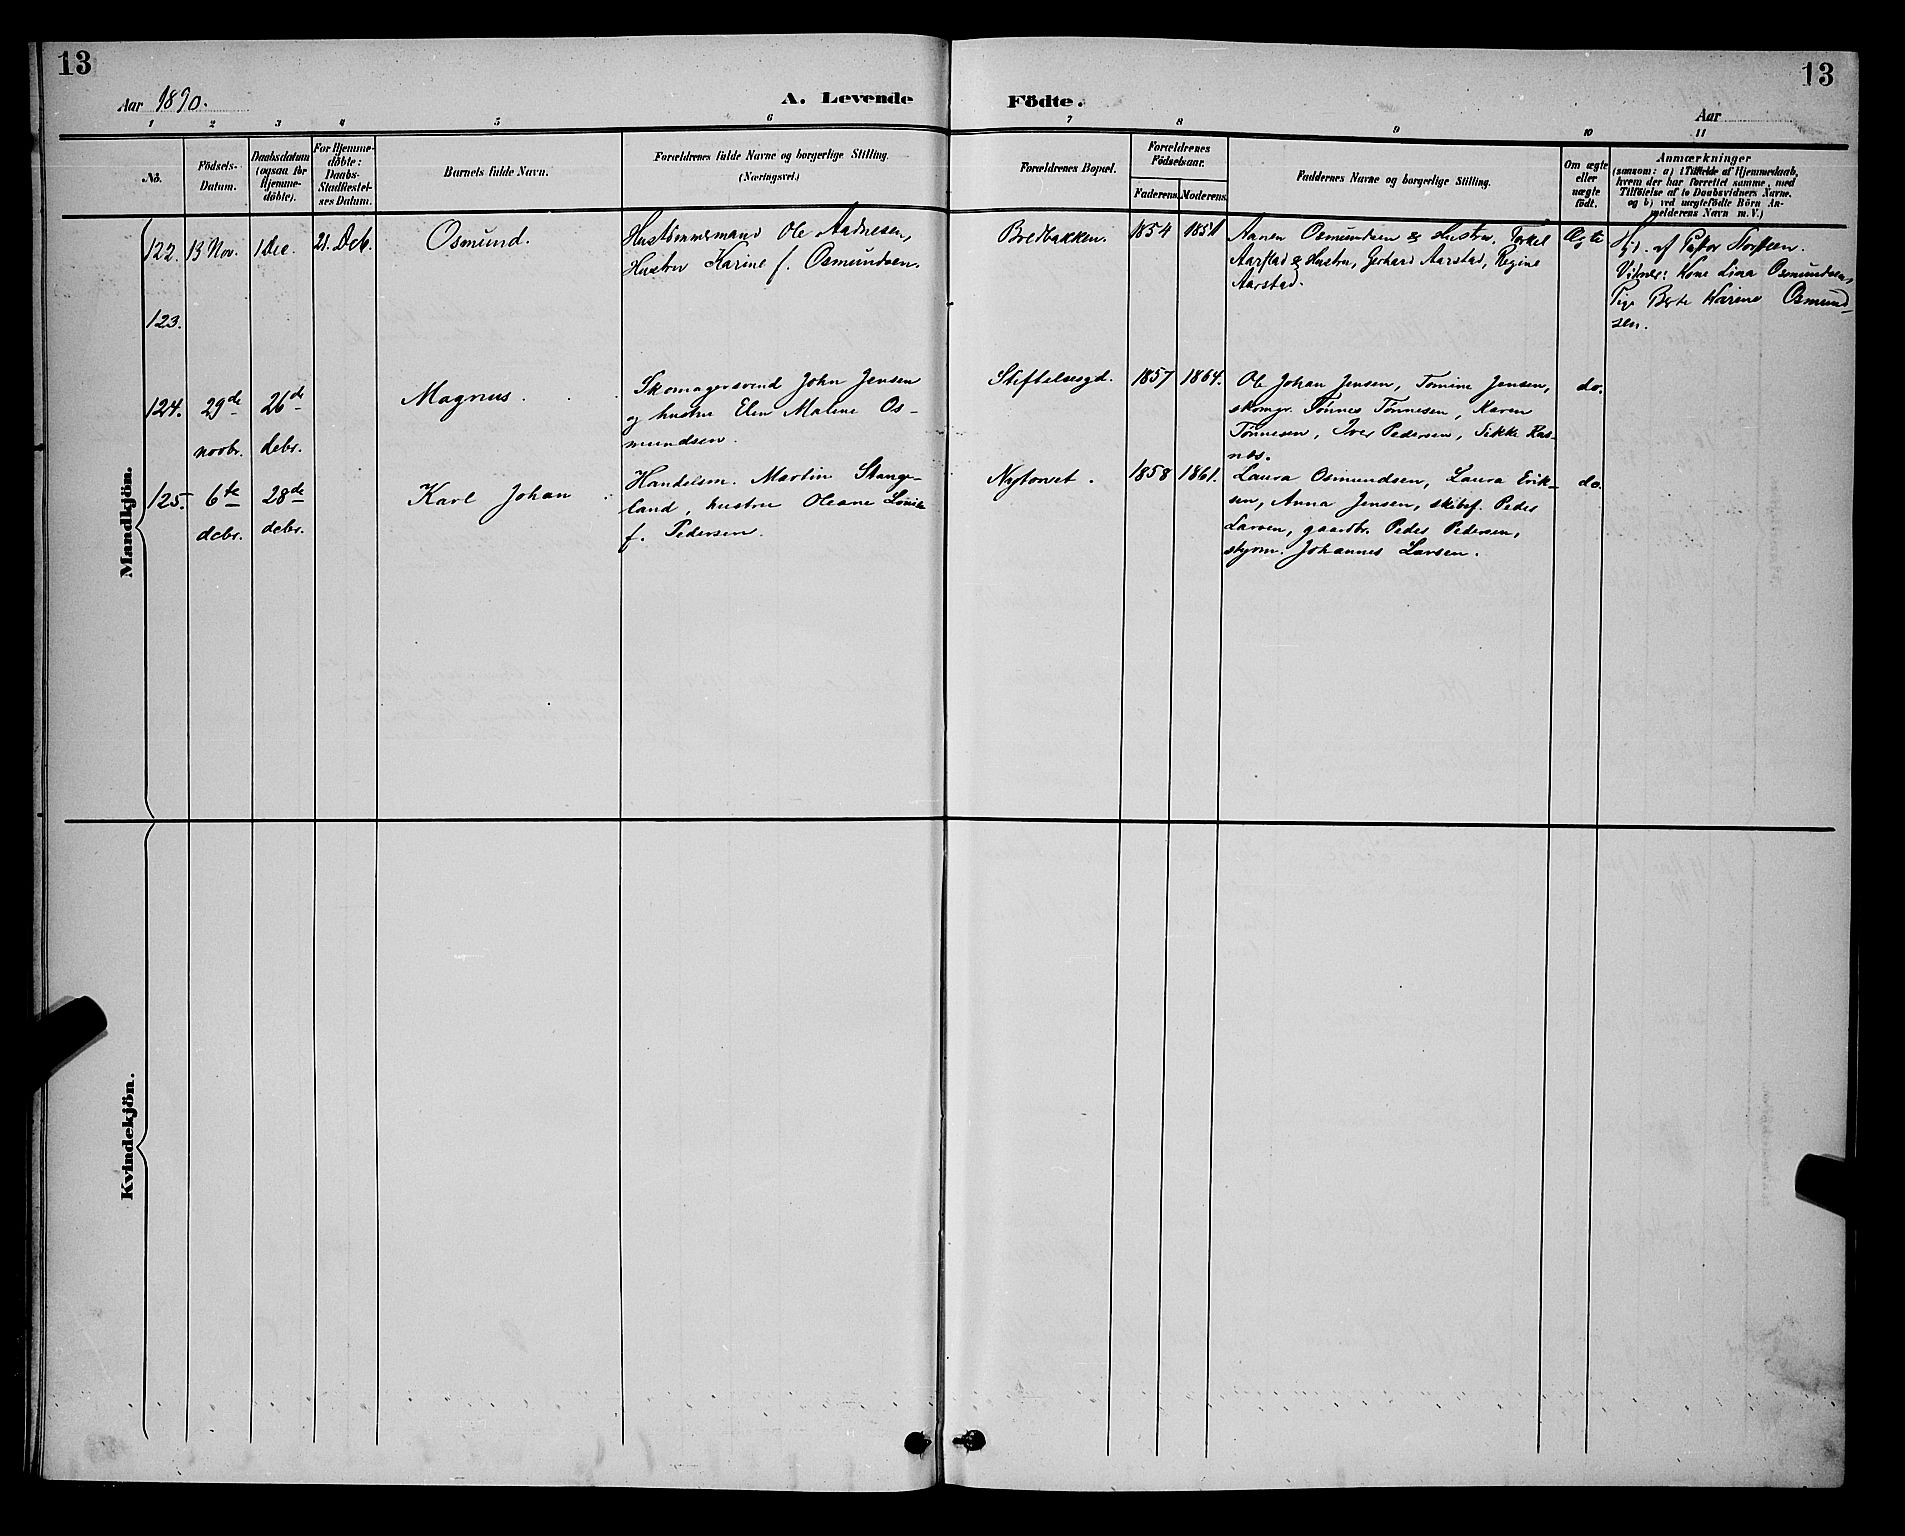 13
13
Aar 1890.
A. Levende Födte.
Aar
1 2 3 4 5 6 7 8 9 10 11
No.
Födsels-
Datum.
Daabsdatum
(ogsaa for
Hjemme-
döbte).
For Hjemme-
döbte:
Daabs-
Stadfæstel-
ses Datum.
Barnets fulde Navn.
Forældrenes fulde Navne og borgerlige Stilling.
(Næringsvei.)
Forældrenes Bopæl.
Forældrenes
Födselsaar.
Faderens. Moderens.
Faddernes Navne og borgerlige Stilling.
Om ægte
eller
uægte
födt.
Anmærkninger
(saasom: a) i Tilfælde af Hjemmedaab,
hvem der har forrettet samme, med
Tilföielse af to Daabsvidners Navne.
og b) ved uægtefödte Börn An-
melderens Navn m. V.)
Mandkjön.
122. 13 Nov. 1 Dec. 21. Deb. Osmund.
Hustömmermand Ole Aadnesen,
Hustru Karine f. Osmundsen.
Bredbakken. 1854 1851
Aanen Osmundsen & Hustru, Torkel
Aarstad & Hustru, Gerhard Aarstad, Regine
Aarstad.
Ægte
Hjd. af Pastor
Vidner: Kone Lina Osmundsen,
Pige Berte Karine Osmund-
sen.
123.
124. 29de 26de
novbr. debr.
Magnus.
Skomagersvend John Jensen
og hustru Elen Maline Os-
mundsen.
Stiftelsesgd. 1857 1864.
Ole Johan Jensen, Tomine Jensen,
skomgr. Tønnes Tønnesen, Karen
Tønnesen, Iver Pedersen, Sikke Ras-
nes.
do.
125. 6te 28de
debr. debr.
Karl Johan
Handelsm. Martin Stange-
land, hustru Oleane Lovise
f. Pedersen.
Nytorvet. 1858 1861.
Laura Osmundsen, Laura Erik-
sen, Anna Jensen, skibsf. Peder
Larsen, gaardbr. Peder Pedersen,
styrm. Johannes Larsen.
do.
Kvindekjön.